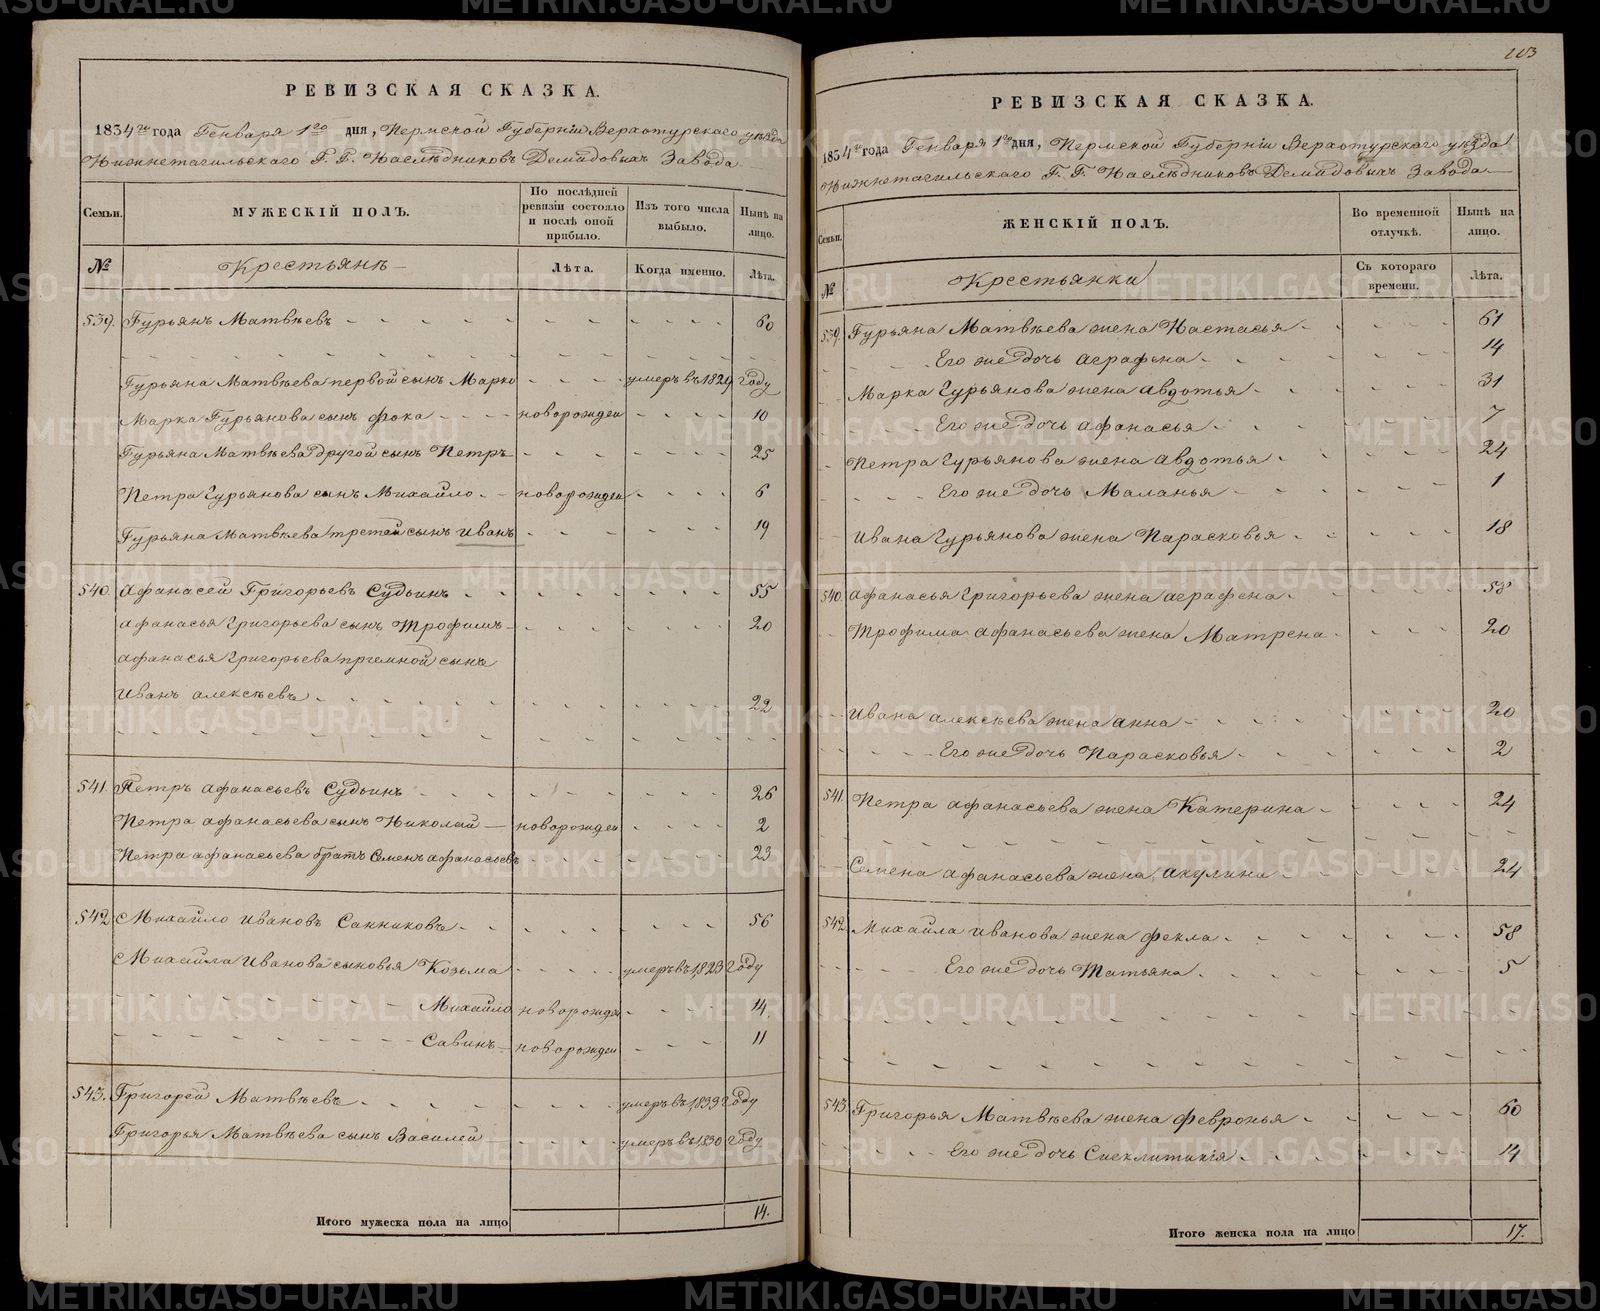 РЕВИЗСКАЯ СКАЗКА.
1834го года Генваря 1го дня, Пермской Губерніи Верхотурскаго уѣзда
Нижнетагильскаго Г. Г. Наслѣдниковъ Демидовыхъ Завода
Семьи.
МУЖЕСКІЙ ПОЛЪ.
По послѣдней ревизіи состояло и послѣ оной прибыло.
Изъ того числа выбыло.
Нынѣ на лицо.
№
Крестьянѣ
Лѣта.
Когда именно.
Лѣта.
539. Гурьянъ Матвѣевъ 60
Гурьяна Матвѣева первой сынъ Марко умеръ въ 1829 году
Марка Гурьянова сынъ Фока новорожден 10
Гурьяна Матвѣева другой сынъ Петръ 25
Петра Гурьянова сынъ Михайло новорожден 6
Гурьяна Матвѣева третей сынъ Иванъ 19
540. Афанасей Григорьевъ Судьинъ 55
Афанасья Григорьева сынъ Трофимъ 20
Афанасья Григорьева пріемной сынъ
Иванъ Алексѣевъ 22
541. Петръ Афанасьевъ Судьинъ 26
Петра Афанасьева сынъ Николай новорожден 2
Петра Афанасьева братъ Семенъ Афанасьевъ 23
542. Михайло Ивановъ Санниковъ 56
Михайла Иванова сыновья Козьма умеръ въ 1823 году
Михайло новорожден 14
Савинъ новорожден 11
543. Григорей Матвѣевъ умеръ въ 1833 году
Григорья Матвѣева сынъ Василей умеръ въ 1830 году
Итого мужеска пола на лицо 14.
203
РЕВИЗСКАЯ СКАЗКА.
1834го года Генваря 1го дня, Пермской Губерніи Верхотурскаго уѣзда
Нижнетагильскаго Г. Г. Наслѣдниковъ Демидовыхъ Завода
Семьи.
ЖЕНСКІЙ ПОЛЪ.
Во временной отлучкѣ.
Нынѣ на лицо.
№
Крестьянки
Съ котораго времени.
Лѣта.
539. Гурьяна Матвѣева жена Настасья 61
Его же дочь Аграфена 14
Марка Гурьянова жена Авдотья 31
Его же дочь Афанасья 7
Петра Гурьянова жена Авдотья 24
Его же дочь Маланья 1
Ивана Гурьянова жена Парасковья 18
540. Афанасья Григорьева жена Аграфена 58
Трофима Афанасьева жена Матрена 20
Ивана Алексѣева жена Анна 20
Его же дочь Парасковья 2
541. Петра Афанасьева жена Катерина 24
Семена Афанасьева жена Акулина 24
542. Михайла Иванова жена Фекла 58
Его же дочь Татьяна 5
543. Григорья Матвѣева жена Февронья 60
Его же дочь Сиеклитикія 14
Итого женска пола на лицо 17.
METRIKI.GASO-URAL.RU